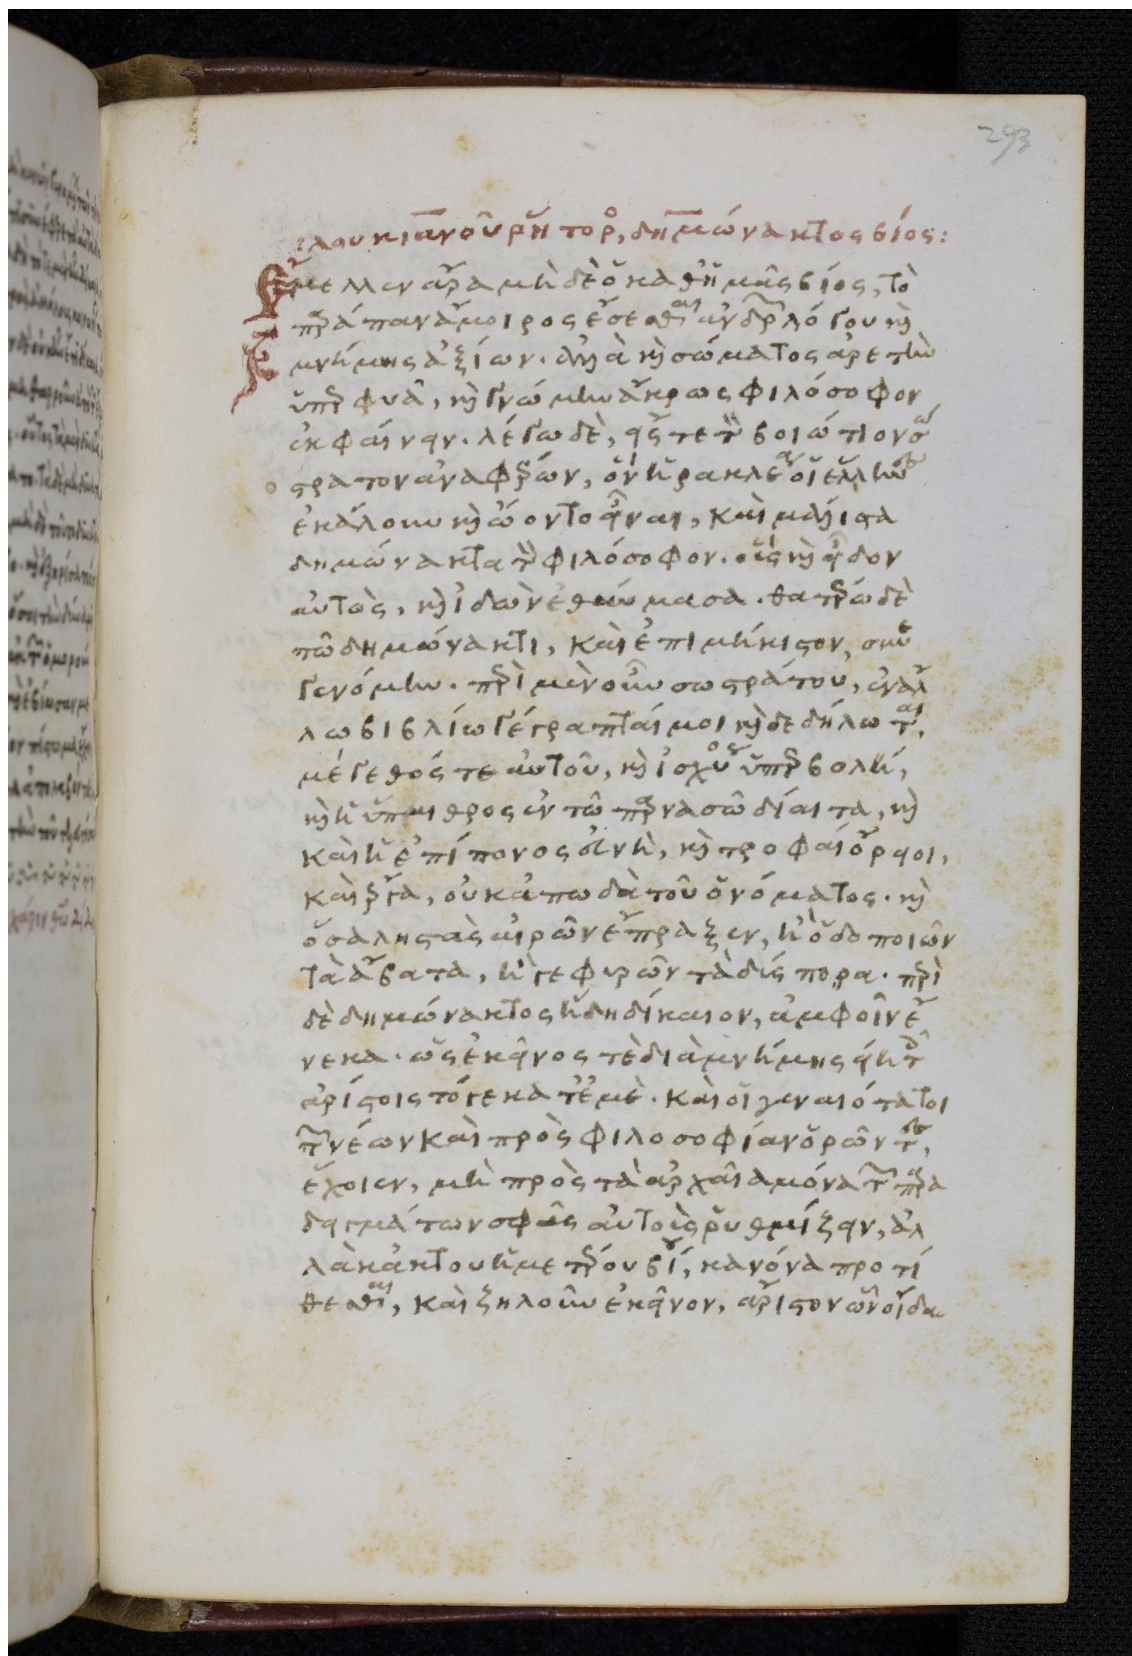 293
λουκιανοῦ ῥήτορ, δημώνακτος βίος:
Ἔμελλεν ἄρα μὴ δὲ ὁ καθ' ἡμᾶς βίος, τὸ
παράπαν ἄμοιρος ἔσεσθαι ἀνδρῶν λόγου καὶ
μνήμης ἀξίων. ἀλλὰ καὶ σώματος ἀρετὴν
ὑπερφυᾶ, καὶ γνώμην ἄκρως φιλόσοφον
ἐκφαίνειν. λέγω δὲ, εἴς τε τὸν βοιώτιον σώ
στρατον ἀναφέρων, ὃν ἡρακλέα οἱ ἕλληνες
ἐκάλουν καὶ ᾤοντο εἶναι, καὶ μάλιστα
δημώνακτα τὸν φιλόσοφον. οὓς καὶ εἶδον
αὐτὸς, καὶ ἰδὼν ἐθαύμασα. θατέρω δὲ
τῶ δημώνακτι, καὶ ἐπιμήκιστον, συνε
γενόμην. περὶ μὲν οὖν σωστράτου, ἐν ἄλ
λω βιβλίω γέγραπταί μοι καὶ δεδήλωται,
μέγεθός τε αὐτοῦ, καὶ ἰσχύος ὑπερβολή,
καὶ ἡ ὕπαιθρος ἐν τῶ παρνασῶ δίαιτα, καὶ
καὶ ἡ ἐπίπονος εὐνὴ, καὶ τροφαὶ ὄρειοι,
καὶ ἔργα, οὐκ ἀπωδὰ τοῦ ὀνόματος. καὶ
ὅσα ληστὰς αἱρῶν ἔπραξεν, ἢ ὁδοποιῶν
τὰ ἄβατα, ἢ γεφυρῶν τὰ δύσπορα. περὶ
δὲ δημώνακτος ἤδη δίκαιον, ἀμφοῖν ἕ
νεκα. ὡς ἐκεῖνός τε διὰ μνήμης εἴη τοῖς
ἀρίστοις τό γε κατ' ἐμὲ. καὶ οἱ γενναιότατοι
τῶν νέων καὶ πρὸς φιλοσοφίαν ὁρῶντες,
ἔχοιεν, μὴ πρὸς τὰ ἀρχαῖα μόνα τῶν παρα
δειγμάτων σφᾶς αὐτοὺς ῥυθμίζειν, ἀλ
λὰ κἀκ τοῦ ἡμετέρου βίου, κανόνα προτί
θεσθαι, καὶ ζηλοῦν ἐκεῖνον, ἄριστον ὧν οἶδα